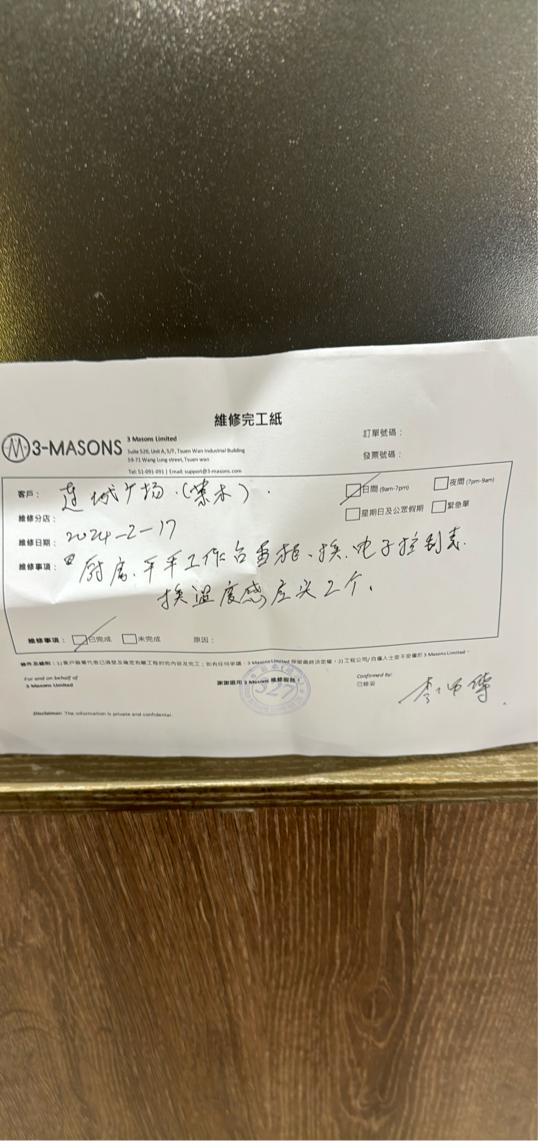 維修完工紙
3-MASONS
3 Masons Limited
Suite 526, Unit A, 5/F, Tsuen Wan Industrial Building
59-71 Wang Lung street, Tsuen wan
Tel: 51-091-091 | Email: support@3-masons.com
訂單號碼：
發票號碼：
客戶： 荃城广场（棠木）.
日間 (9am-7pm) 夜間 (7pm-9am)
維修分店：
星期日及公眾假期 緊急單
維修日期： 2024-2-17
維修事項： 厨房、平手工作台雪柜、换、电子控制表.
换温度感应头2个.
維修事項： 已完成 未完成 原因：
For and on behalf of
3 Masons Limited
謝謝選用 3 Masons 維修服務！
327
Confirmed By:
李师傅
Disclaimer: The information is private and confidential.